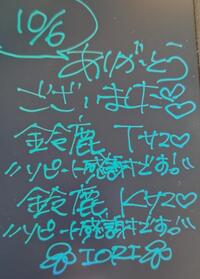 10/6
ありがとう
ございました♡♡
鈴鹿 Tサ2♡
〃リピート感謝です!!〃
鈴鹿 Kサ2♡
〃リピート感謝です!!〃
IORI